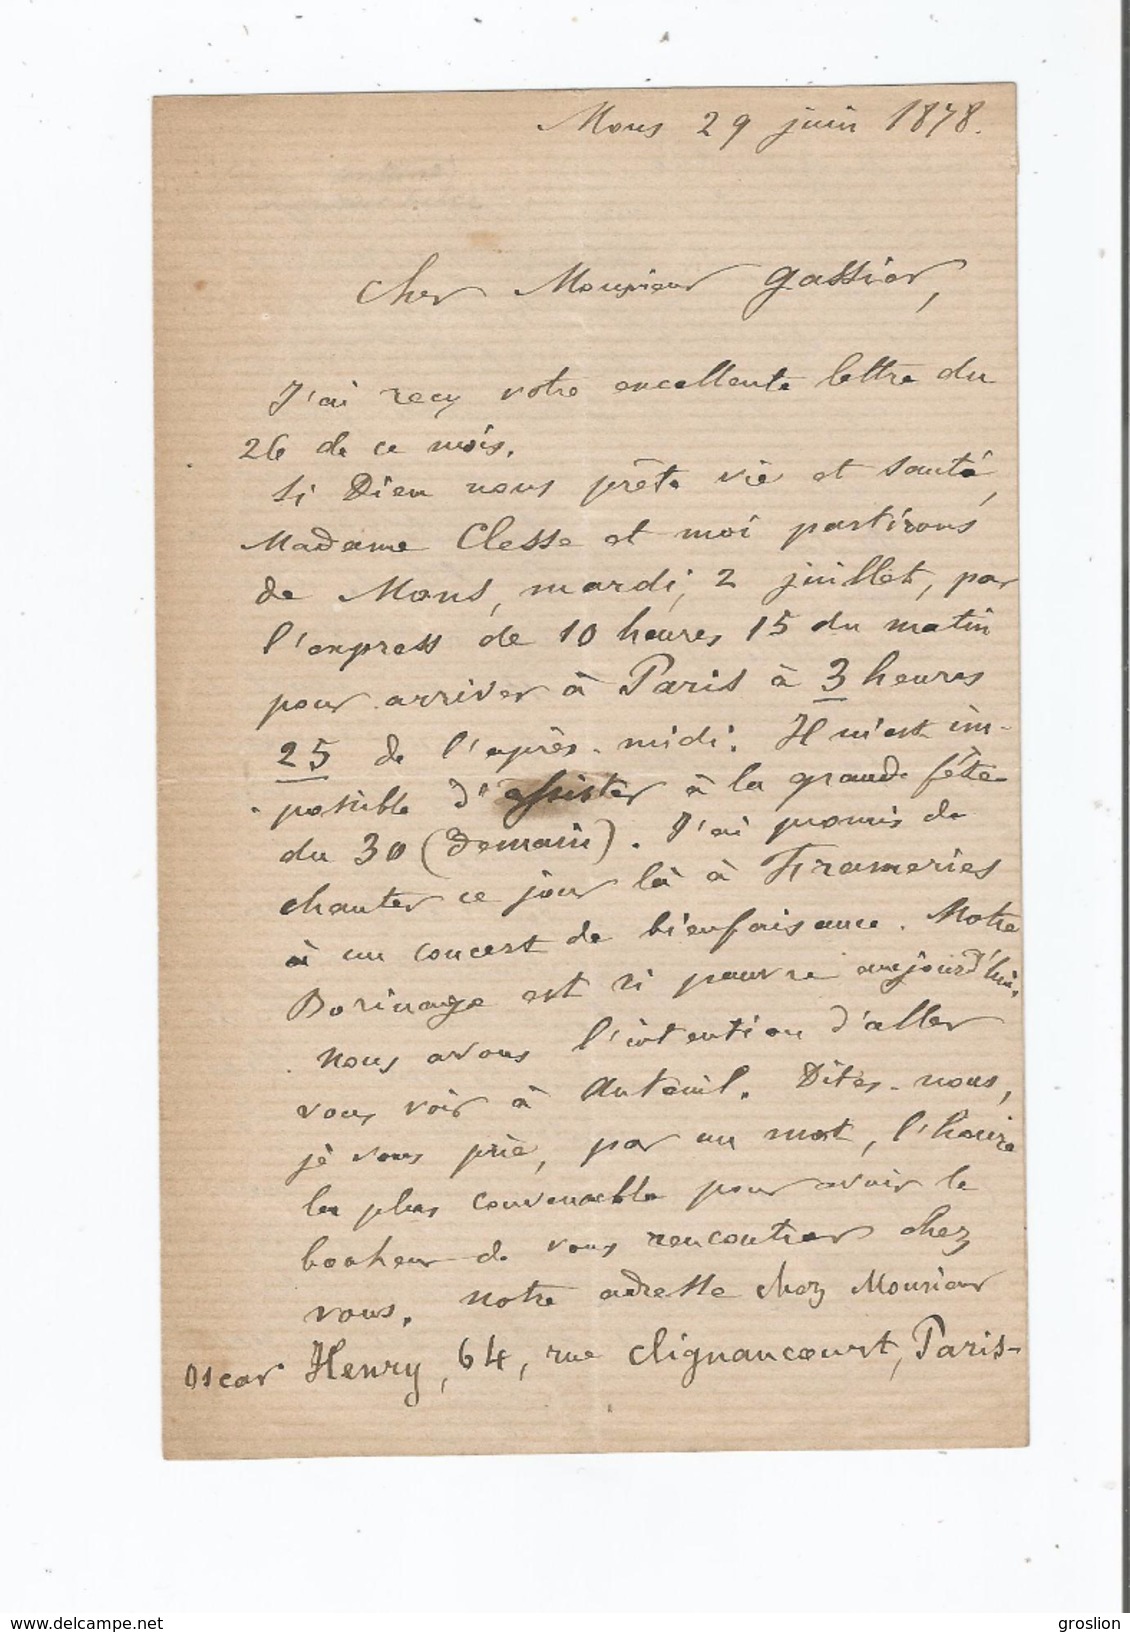 Mons 29 juin 1878.
Cher Monsieur Gassier,
J'ai reçu votre excellente lettre du
26 de ce mois.
Si Dieu nous prête vie et santé,
Madame Clesse et moi partirons
de Mons, mardi, 2 juillet, par
l'express de 10 heures 15 du matin
pour arriver à Paris à 3 heures
25 de l'après-midi. Il m'est im-
possible d'assister à la grande fête
du 30 (demain). J'ai promis de
chanter ce jour là à Frameries
à un concert de bienfaisance. Notre
Borinage est si pauvre aujourd'hui.
Nous avons l'intention d'aller
vous voir à Auteuil. Dites-nous,
je vous prie, par un mot, l'heure
la plus convenable pour avoir le
bonheur de vous rencontrer chez
vous. Notre adresse chez Monsieur
Oscar Henry, 64, rue Clignancourt, Paris-
www.delcampe.net
groslion